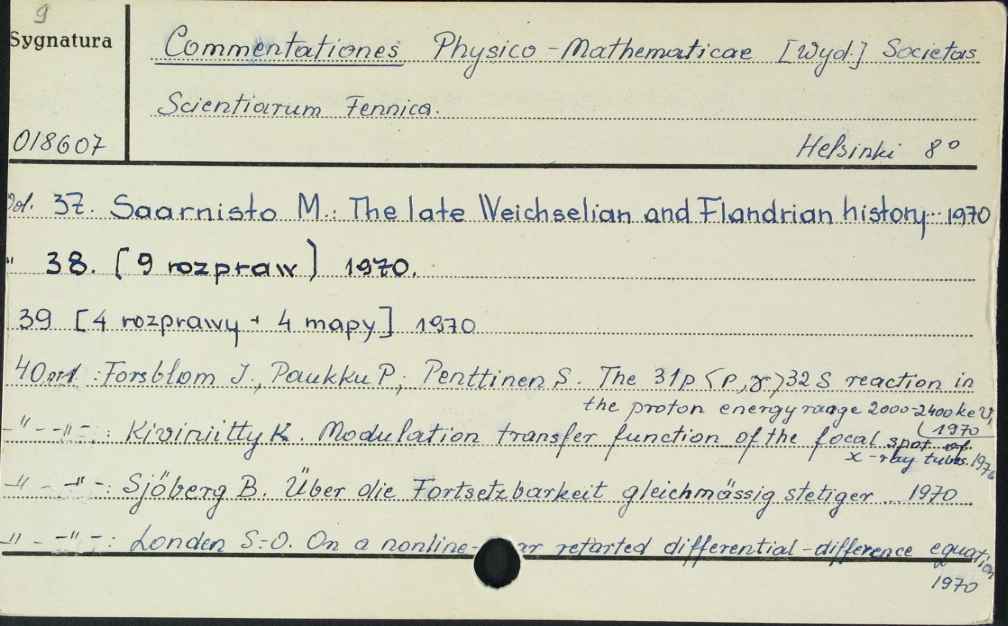 9
Sygnatura
Commentationes Physico-Mathematicae [Wyd.] Societas
Scientiarum Fennica.
018607
Helsinki 8°
Vol. 37. Saarnisto M.: The late Weichselian and Flandrian history... 1970
" 38. [9 rozpraw] 1970.
39 [4 rozprawy + 4 mapy] 1970
40 nr 1 : Forsblom J., Paukku P., Penttinen S. The 31p (p,γ) 32 S reaction in
the proton energy range 2000-2400 keV,
1970
-"- -"- : Kiviniitty K. Modulation transfer function of the focal spot of
x-ray tubes. 1970
-"- -"- : Sjöberg B. Über die Fortsetzbarkeit gleichmässig stetiger ... 1970
-"- -"- : Londen S-O. On a nonline- ar retarted differential-difference equation
1970